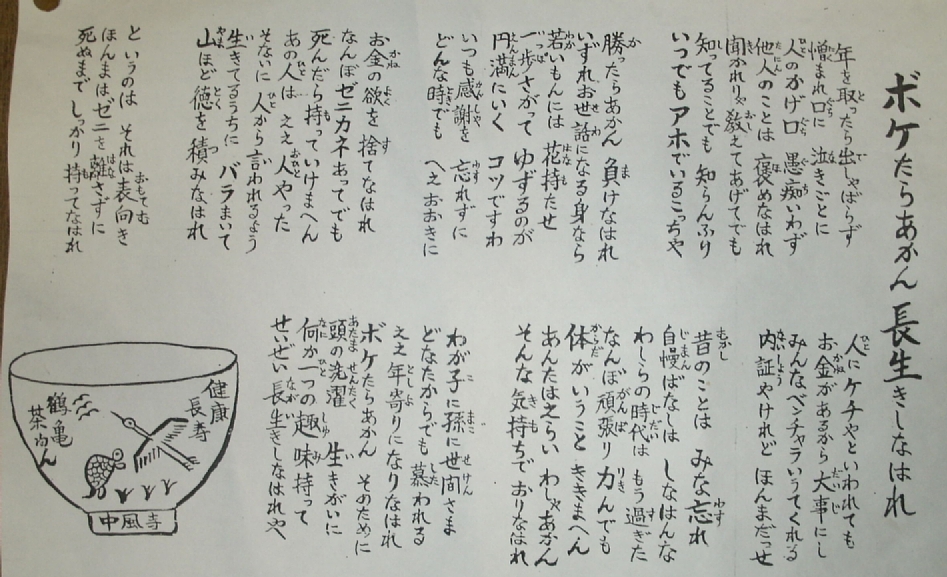 ボケたらあかん 長生きしなはれ
年を取ったら出しゃばらず
憎まれ口に 泣きごとに
人のかげ口 愚痴いわず
他人のことは 褒めなはれ
聞かれりゃ教えてあげてでも
知ってることでも 知らんふり
いつでもアホでいるこっちゃ
勝ったらあかん 負けなはれ
いずれお世話になる身なら
若いもんには 花持たせ
一歩さがって ゆずるのが
円満にいく コツですわ
いつも感謝を 忘れずに
どんな時でも へえおおきに
お金の欲を 捨てなはれ
なんぼゼニカネあってでも
死んだら持っていけまへん
あの人は ええ人やった
そないに 人から言われるよう
生きてるうちに バラまいて
山ほど徳を 積みなはれ
というのは それは表向き
ほんまはゼニを離さずに
死ぬまで しっかり 持ってなはれ
人にケチやといわれても
お金があるから 大事にし
みんなベンチャラいうてくれる
内証やけれど ほんまだっせ
昔のことは みな忘れ
自慢ばなしは しなはんな
わしらの時代は もう過ぎた
なんぼ頑張り 力んでも
体がいうこと ききまへん
あんたはえらい わしゃあかん
そんな気持ちで おりなはれ
わが子に孫に世間さま
どなたからでも 慕われる
ええ年寄りになりなはれ
ボケたらあかん そのために
頭の洗濯 生きがいに
何か一つの趣味持って
せいぜい長生きしなはれや
健康
長寿
鶴亀
茶わん
中風寺